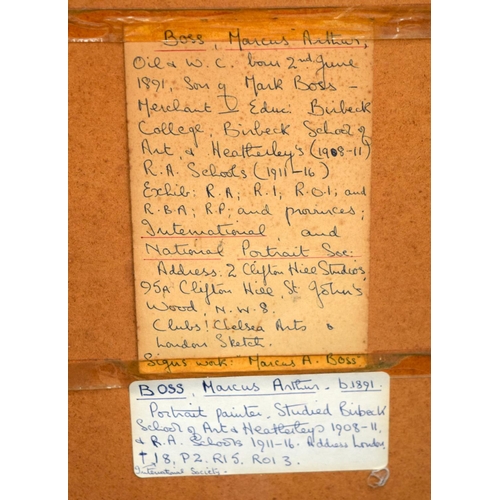 BOSS, Marcus Arthur,
Oil & W.C. born 2nd June
1891, Son of Mark Boss –
Merchant – Educ: Birbeck
College, Birbeck School of
Art, & Heatherley's (1908-11)
R.A. Schools (1911-16)
Exhib: R.A; R.I; R.O.I; and
R.B.A; R.P; and provinces;
International and
National Portrait Soc:
Address: 2 Clifton Hill Studios,
95A Clifton Hill, St John's
Wood, N.W.8.
Clubs: Chelsea Arts &
London Sketch.
Signs work: "Marcus A. Boss"
BOSS, Marcus Arthur. b1891.
Portrait painter. Studied Birbeck
School of Art & Heatherleys 1908-11.
& R.A. Schools 1911-16. Address London,
†18, P2. R15. ROI 3.
International Society –